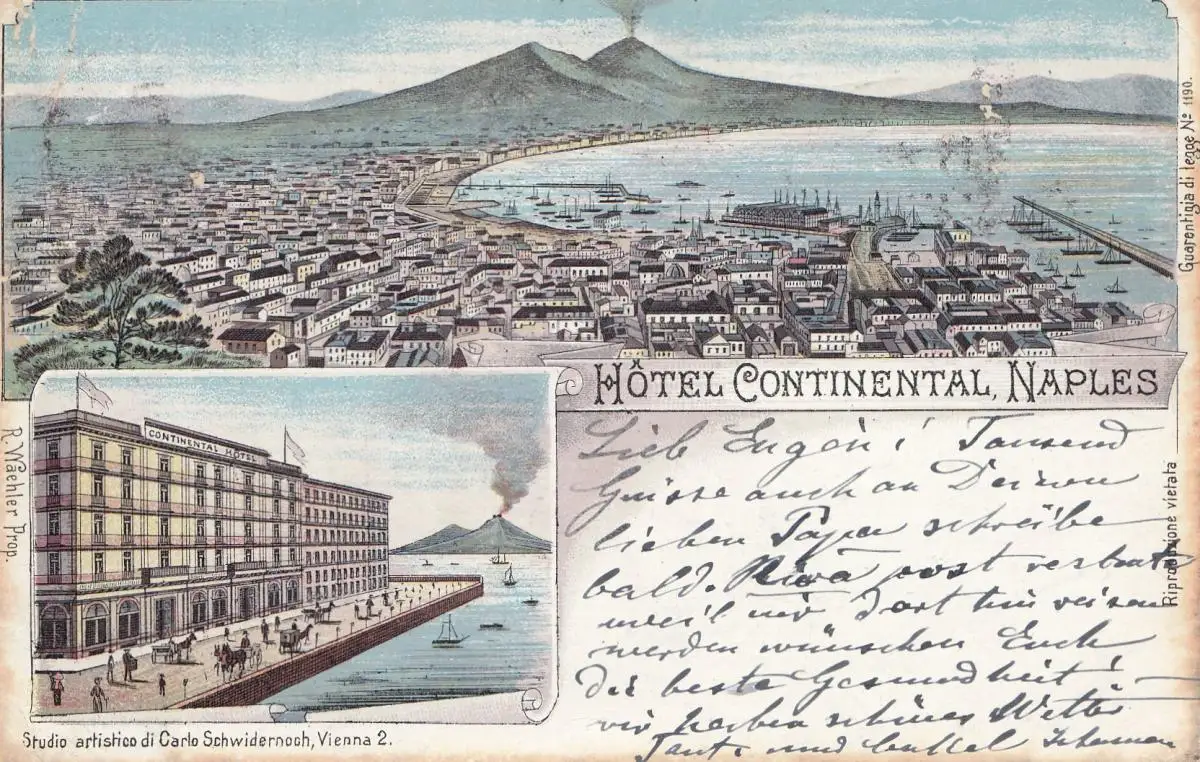 Guarentigia di legge Nº 1190.
HÔTEL CONTINENTAL, NAPLES
CONTINENTAL HÔTEL
R. Wæhler Prop.
Riproduzione vietata
Lieb Eugen! Tausend
Grüsse auch an Deinen
lieben Papa schreibe
bald. Riva post
weil wir dort hin reisen
werden wünschen Euch
die beste Gesundheit!
wir haben schönes Wetter
Tante und
Studio artistico di Carlo Schwidernoch, Vienna 2.